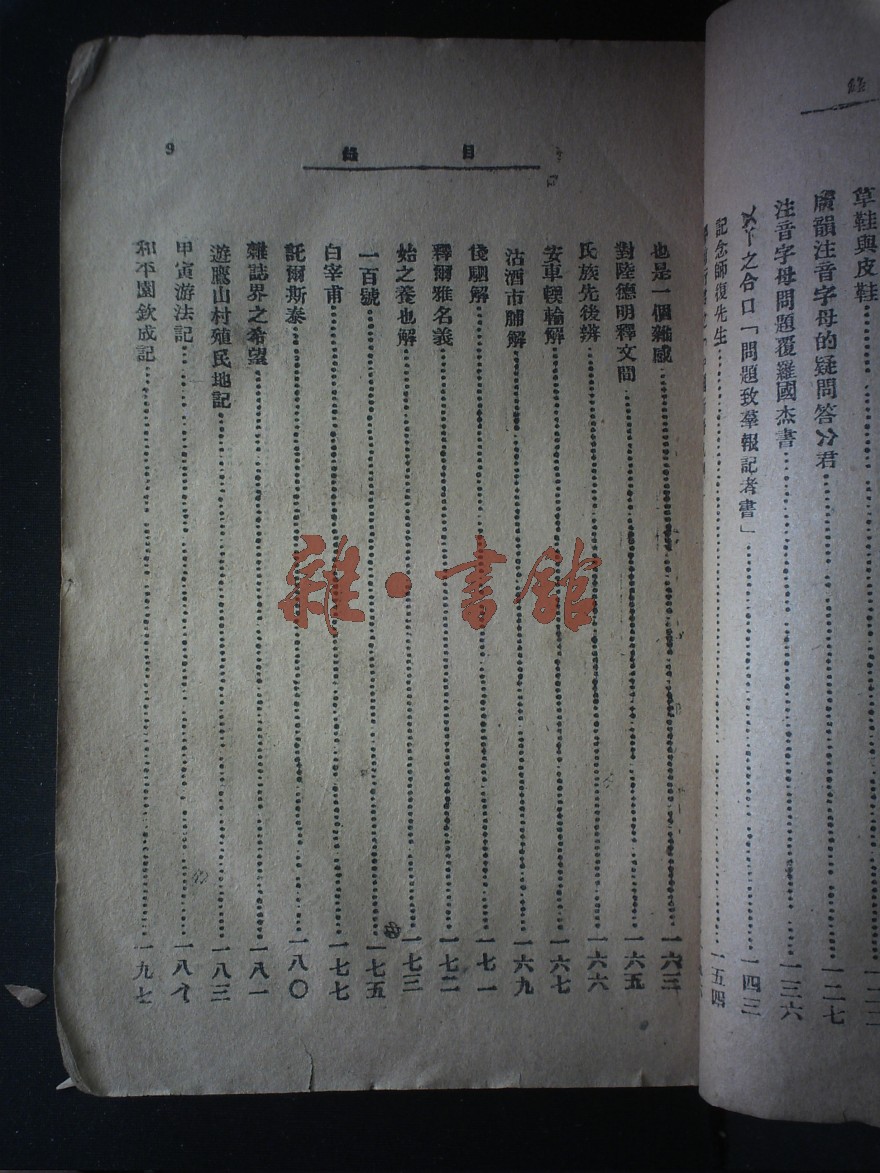 草鞋與皮鞋
廣韻注音字母的疑問答厹君……一二七
注音字母問題覆羅國杰書……一三六
之合口「問題致羣報記者書」……一四三
記念師復先生……一五四
目錄 9
也是一個雜感……一六三
對陸德明釋文問……一六五
氏族先後辨……一六六
安車輭輪解……一六七
沽酒市脯解……一六九
俴駟解……一七一
釋爾雅名義……一七二
始之養也解……一七三
一百號……一七五
白宰甫……一七七
託爾斯泰……一八〇
雜誌界之希望……一八一
遊鷹山村殖民地記……一八三
甲寅游法記……一八八
和平園欽成記……一九七
雜·書館